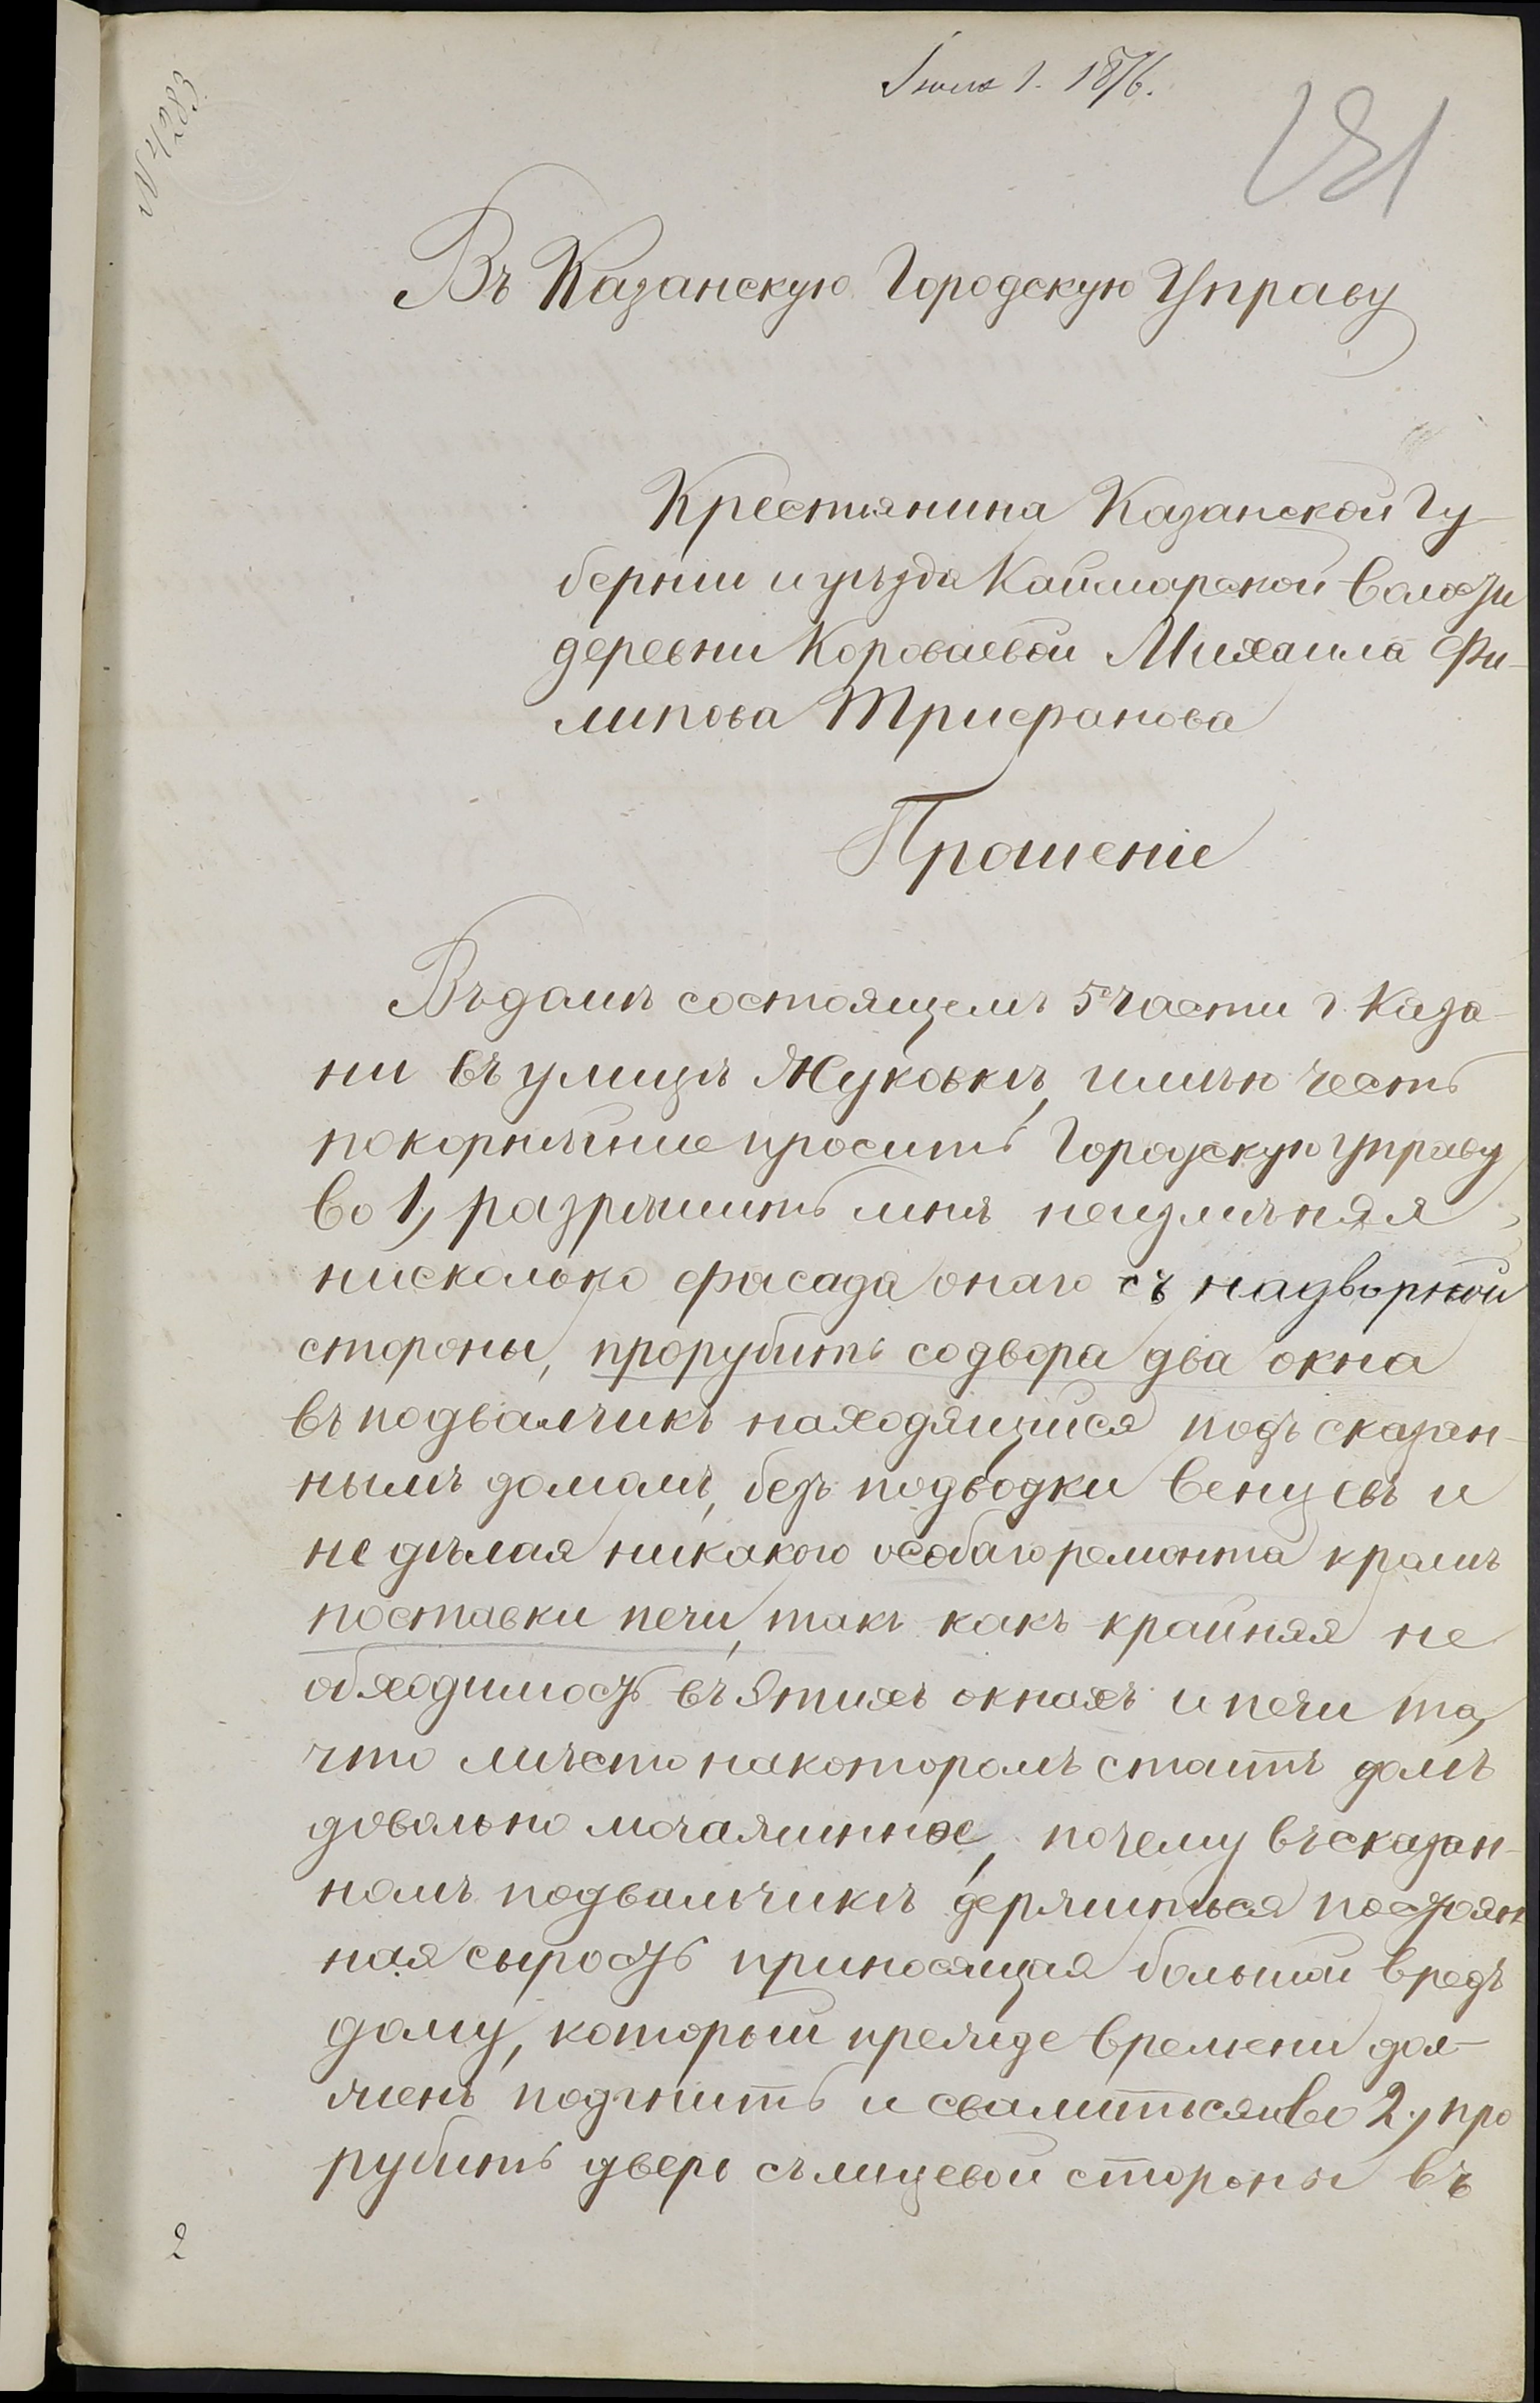 Іюля 1. 1876.
181
Въ Казанскую Городскую Управу
Крестьянина Казанской Гу-
берніи и уѣзда Каймарской волости
деревни Короваевой Михаила Фи-
липова Трифанова
Прошеніе
Въ домѣ состоящемъ 5 части г. Каза-
ни въ улицѣ Жуковкѣ, имѣю честь
покорнѣйше просить Городскую управу
во 1, разрѣшить мнѣ неизмѣняя
нисколько фасада онаго съ надворной
стороны, прорубить со двора два окна
въ подвалчикъ находящийся подъ сказан-
нымъ домомъ, безъ подводки венцевъ и
не дѣлая никакого особаго ремонта кромѣ
поставки печи, такъ какъ крайняя не
обходимость въ этихъ окнахъ и печи та,
что мѣсто на которомъ стоитъ домъ
довольно мочажинное, почему въ сказан-
номъ подвальчикѣ держиться постоян
ная сырость приносящая большой вредъ
дому, который прежде времени дол-
женъ подгнить и свалиться и во 2, про
рубить дверь съ лицевой стороны въ
2